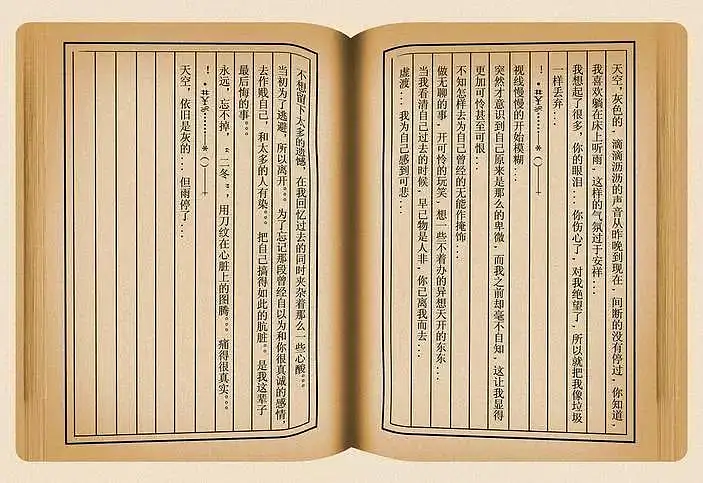 天空，灰色的，滴滴沥沥的声音从昨晚到现在，间断的没有停过，你知道，
我喜欢躺在床上听雨，这样的气氛过于安样...
我想起了很多，你的眼泪...你伤心了，对我绝望了，所以就把我像垃圾
一样丢弃...
！·#￥%……*（）—+
视线慢慢的开始模糊...
突然才意识到自己原来是那么的卑微，而我之前却毫不自知，这让我显得
更加可怜甚至可恨...
不知怎样去为自己曾经的无能作掩饰...
做无聊的事，开可怜的玩笑，想一些不着办的异想天开的东东...
当我看清自己过去的时候，早已物是人非，你已离我而去...
虚渡...我为自己感到可悲...
不想留下太多的遗憾，在我回忆过去的同时夹杂着那么一些心酸。。。
当初为了逃避，所以离开。。。为了忘记那段曾经自以为和你很真诚的感情，
去作贱自己，和太多的人有染。。。把自己搞得如此的肮脏。。是我这辈子
最后悔的事。。。
永远，忘不掉，“二冬”，用刀纹在心脏上的图腾。。。痛得很真实。。。
！·#￥%……*（）—+
天空，依旧是灰的...但雨停了...